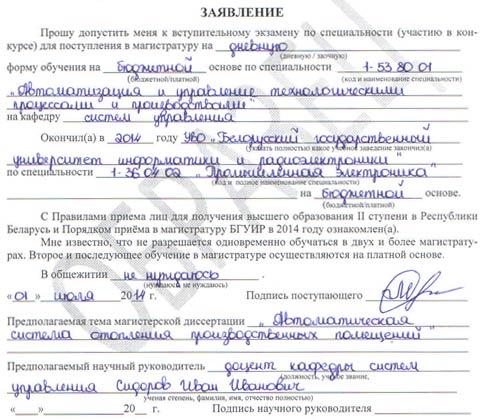 ЗАЯВЛЕНИЕ
Прошу допустить меня к вступительному экзамену по специальности (участию в кон-
курсе) для поступления в магистратуру на дневную
(дневную / заочную)
форму обучения на бюджетной основе по специальности 1-53 80 01
(бюджетной/платной) (код и наименование специальности)
„Автоматизация и управление технологическими
процессами и производствами"
на кафедру систем управления
Окончил(а) в 2014 году УВО „Белорусский государственный
(указать полностью какое учебное заведение закончил(а)
университет информатики и радиоэлектроники"
по специальности 1-36 04 02 „Промышленная электроника"
(код и полное наименование специальности)
на бюджетной основе.
(бюджетной/платной)
С Правилами приема лиц для получения высшего образования II ступени в Республики
Беларусь и Порядком приёма в магистратуру БГУИР в 2014 году ознакомлен(а).
Мне известно, что не разрешается одновременно обучаться в двух и более магистрату-
рах. Второе и последующее обучение в магистратуре осуществляются на платной основе.
В общежитии не нуждаюсь.
(нуждаюсь/ не нуждаюсь)
«01» июля 2014 г. Подпись поступающего
Предполагаемая тема магистерской диссертации „Автоматическая
система отопления производственных помещений"
Предполагаемый научный руководитель доцент кафедры систем
(должность, учёное звание,
управления Сидоров Иван Иванович
ученая степень, фамилия, имя, отчество полностью)
«__»____ 20__ г. Подпись научного руководителя
ОБРАЗЕЦ